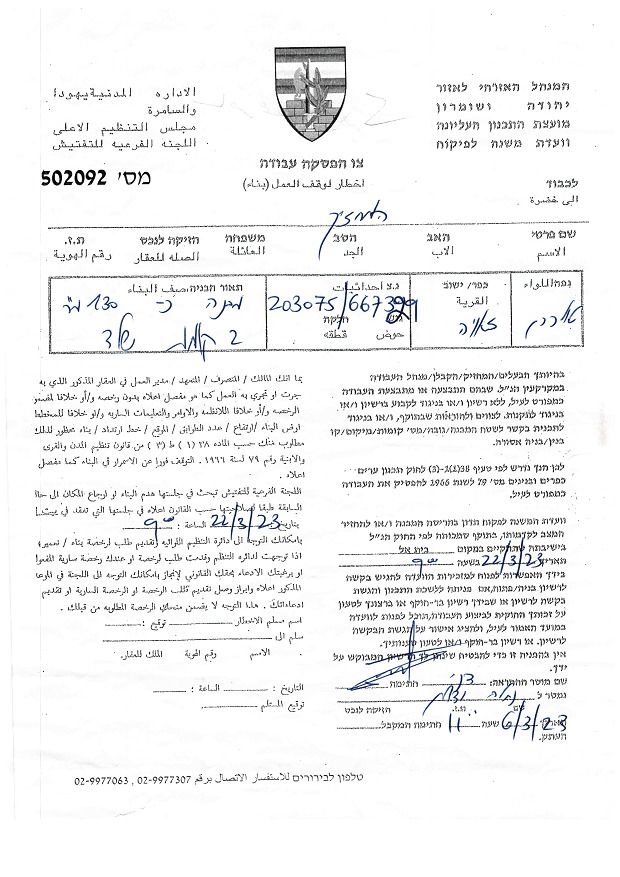 המנהל האזרחי לאזור
יהודה ושומרון
מועצת התכנון העליונה
וועדת משנה לפיקוח
الاداره المدنية يهودا
والسامرة
مجلس التنظيم الاعلى
اللجنه الفرعيه للتفتيش
צו הפסקה עבודה
اخطار لوقف العمل (بناء)
מס' 502092
לכבוד
الى حضرة
המחזיק
שם פרטי האב הסב משפחה חזיקה לנכס ת.ז.
الاسم الاب الجد العائلة الصله للعقار رقم الهوية
נפה/اللواء כפר/ישוב נ.צ احداثيات תאור הבניה/صف البناء
القرية 203075/667399 מבנה כ- 130 מ"ר
גוש חלקה
حوض قطعه
2 קומות שלד
בהיותך הבעלים/המחזיק/הקבלן/מנהל העבודה
במקרקעין הנ"ל, שבהם התבצעה או מתבצעת העבודה
כמפורט לעיל, ללא רשיון ו/או בניגוד לקבוע ברשיון ו/או
בניגוד לתקנות, לצווים ולהוראות שבתוקף, ו/או בניגוד
לתכנית בקשר לשטח המבנה/גובה/מס' קומות/מיקום/קו
בנין/בניה אסורה.
לכן הנך נדרש לפי סעיף 38(1)(ג-ב) לחוק תכנון ערים
כפרים ובנינים מס' 79 לשנת 1966 להפסיק את העבודה
כמפורט לעיל.
וועדת המשנה לפקוח תדון בהריסת המבנה ו/או להחזיר
המצב לקדמותו, בתוקף סמכותה לפי החוק הנ"ל
בישיבתה שתתקיים במקום בית אל
תאריך 22/3/23 בשעה 9:00
בידך האפשרות לפנות למזכירות הוועדה להגיש בקשה
לרשיון בניה/פתוח, אם פניתה ללשכת התכנון והגשת
בקשה לרשיון או שבידך רשיון בר-תוקף או ברצונך לטעון
על זכותך החוקית לביצוע העבודה, תוכל לפנות לוועדה
במועד האמור לעיל, ולהציג אישור על הגשת הבקשה
לרשיון, או רשיון בר-תוקף ו/או לטעון טענותיך.
אין בהפניה זו כדי להבטיח שינתן לך הרשיון המבוקש על
ידך.
שם מוסר ההתראה: חתימה
נמסר ל
שם ת.ז. הזיקה לנכס
תאריך 6/3/23 שעה 11:00 חתימת המקבל
העתק.
بما انك المالك / المتصرف / المتعهد / مدير العمل في العقار المذكور الذي به
جرت او تجري به العمل كما هو مفصل اعلاه بدون رخصه و/أو خلافا للمضمون
الرخصه و/أو خلافا للانظمه والاوامر والتعليمات الساريه و/او خلافا للمخطط
لوض البناء / ارتفاع / عدد الطوابق / الموقع / خط ارتداد / بناء محظور لذلك
مطلوب منك حسب الماده ٣٨ (١) ط (٣) من قانون تنظيم المدن والقرى
والابنية رقم ٧٩ لسنة ١٩٦٦ التوقف فورا عن الاسمرار في البناء كما مفصل
اعلاه .
اللجنه الفرعيه للتفتيش تبحث في جلستها هدم البناء او ارجاع المكان الى حالته
السابقة طبقا لصلاحيتها حسب القانون اعلاه في جلستها التي تعقد في
بتاريخ 22/3/23 الساعة : 9:00
بامكانك التوجه الى دائرة التنظيم اللوائيه لتقديم طلب لرخصة بناء / تعمير؛
اذا توجهت لدائره التنظم وقدمت طلب لرخصة او عندك رخصة سارية المفعول
او برغبتك الادعاء بحقك القانوني لإنجاز بامكانك التوجه الى اللجنة في الموعد
المذكور اعلاه وابراز وصل تقديم طلب الرخصة او الرخصة السارية او تقديم
ادعاءاتك . هذا التوجه لا يضمن منحك الرخصة المطلوبه من قبلك .
اسم مسلم الاخطار توقيع :
سلم الى
الاسم رقم الهوية الملك للعقار.
التاريخ : الساعة :
توقيع المستلم
טלפון לבירורים للاستفسار الاتصال برقم 02-9977307 , 02-9977063